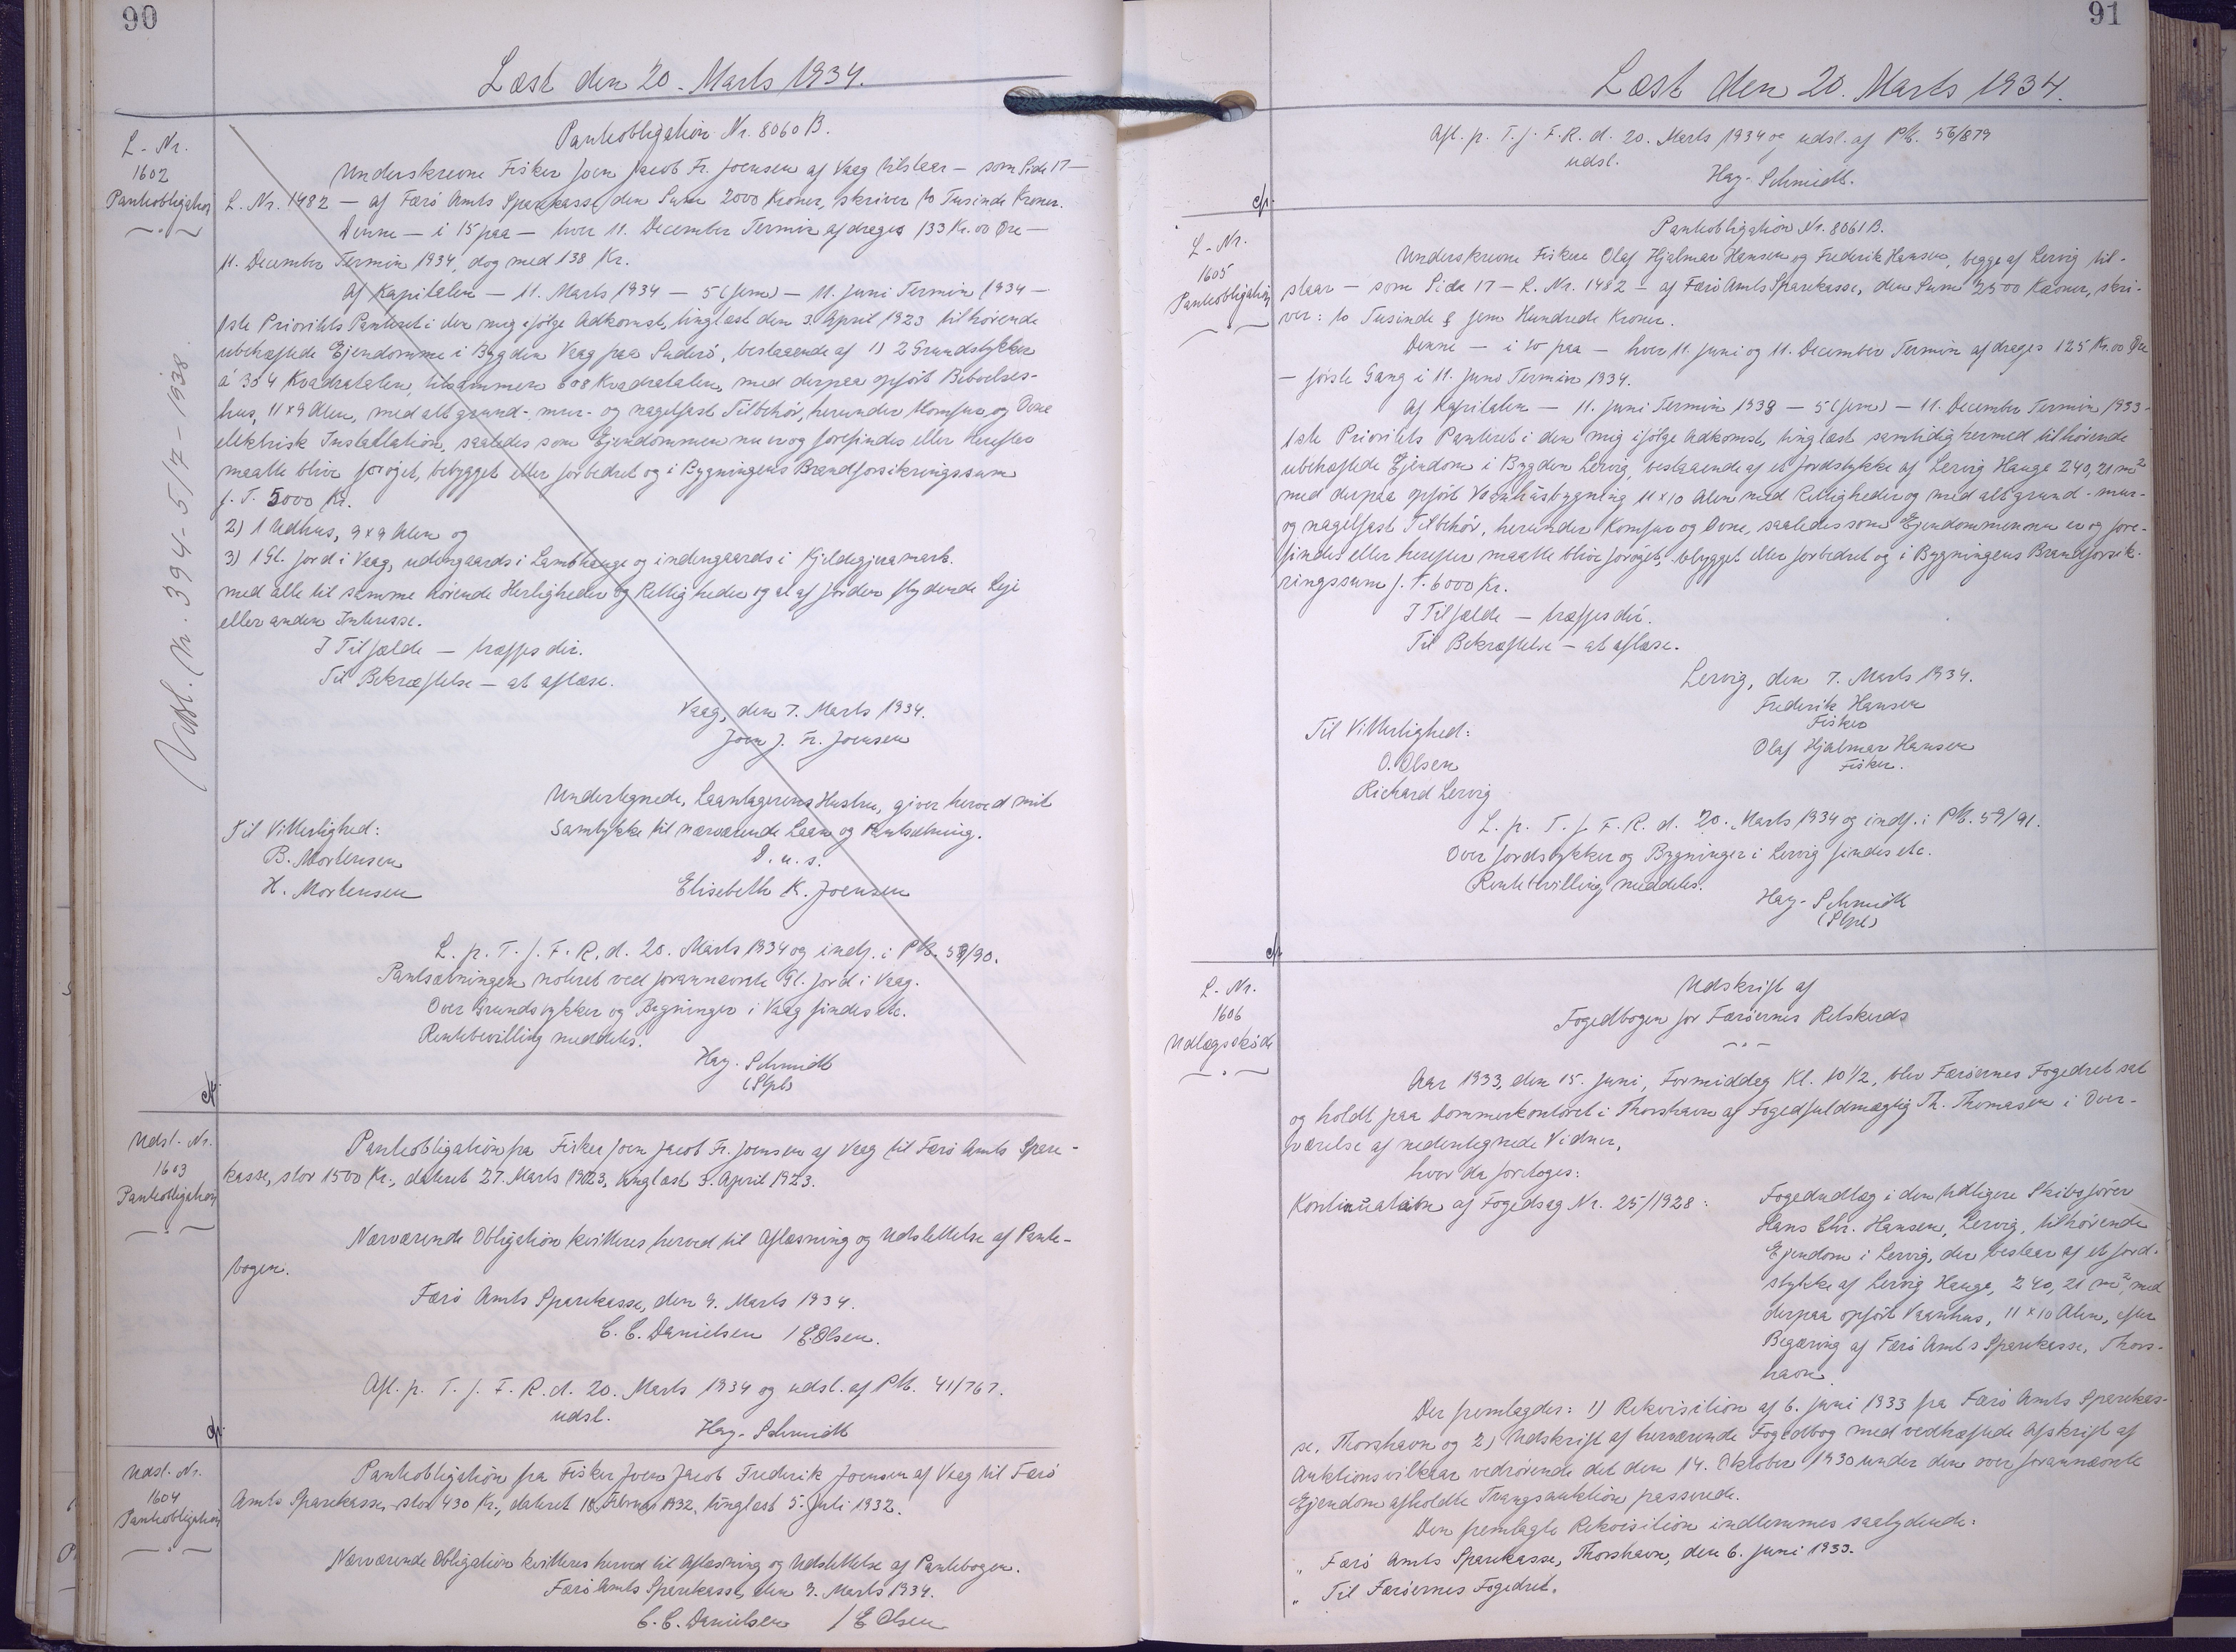 90
Læst den 20. Marts 1934.
L-Nr.
1602
Panteobligation
Panteobligation Nr. 8060 B.
Underskrevne Fisker Joen Jacob Fr. Joensen af Vaag tilstaar — som Side 17 —
L. Nr. 1482 — af Færö Amts Sparekasse den Sum 2000 Kroner, skriver to Tusinde Kroner.
Denne — i 15 paa — hver 11. December Termin afdrages 133 Kr. 00 Øre —
11. December Termin 1934, dog med 138 Kr.
Af Kapitalen — 11. Marts 1934 — 5 (fem) — 11. Juni Termin 1934 —
1ste Prioritets Panteret i den mig ifölge Adkomst, tinglæst den 3. April 1923 tilhörende
ubehæftede Ejendomme i Bygden Vaag paa Suderö, bestaaende af 1) 2 Grundstykker
á 304 Kvadratalen, tilsammen 608 Kvadratalen, med derpaa opfört Beboelses-
hus, 11 x 9 Alen, med alt grund- mur- og nagelfast Tilbehör, herunder Komfur og Ovne
elektrisk Installation, saaledes som Ejendommen nu er og forefindes eller herefter
maatte blive foröjet, bebygget eller forbedret og i Bygningens Brandforsikringssum
f. T. 5000 Kr.
2) 1 Udhus, 9 x 9 Alen og
3) 1 Gl. Jord i Vaag, udengaards i Lambhauge og indengaards i Kjeldegjeramark.
med alle til samme hörende Herligheder og Rettigheder og al af Jorden flydende Leje
eller anden Interesse.
I Tilfælde — træffes dér.
Til Bekræftelse — at aflæse.
Vaag, den 7. Marts 1934.
Joen J. Fr. Joensen
Undertegnede, Laantagerens Hustru, giver herved mit
Samtykke til nærværende Laan og Pantsætning.
D. u. s.
Elisebeth K. Joensen
Til Vitterlighed:
B. Mortensen
H. Mortensen
L. p. T. f. F. R. d. 20. Marts 1934 og indf. i PB. 59/90.
Pantsætningen noteret ved forannævnte Gl. Jord i Vaag.
Over Grundstykker og Bygninger i Vaag findes etc.
Rentebevilling meddeles.
Hay-Schmidt
(Stpl)
Udsl. Nr. 394 - 5/7 - 1938.
Udsl. Nr.
1603
Panteobligation
Panteobligation fra Fisker Joen Jacob Fr. Joensen af Vaag til Færö Amts Spare-
kasse, stor 1500 Kr., dateret 27. Marts 1923, tinglæst 3. April 1923.
Nærværende Obligation kvitteres herved til Aflæsning og Udslettelse af Pante-
bogen.
Færö Amts Sparekasse, den 9. Marts 1934.
C. C. Danielsen / E. Olsen.
Afl. p. T. f. F. R. d. 20. Marts 1934 og udsl. af PB. 41/767.
udsl.
Hay-Schmidt
Udsl. Nr.
1604
Panteobligation
Panteobligation fra Fisker Joen Jacob Frederik Joensen af Vaag til Færö
Amts Sparekasse, stor 430 Kr., dateret 18. Februar 1932, tinglæst 5. Juli 1932.
Nærværende Obligation kvitteres herved til Aflæsning og Udslettelse af Pantebogen.
Færö Amts Sparekasse, den 9. Marts 1934.
C. C. Danielsen / E. Olsen
91
Læst den 20. Marts 1934.
Afl. p. T. f. F. R. d. 20. Marts 1934 og udsl. af PB. 56/879
udsl.
Hay-Schmidt.
L-Nr.
1605
Panteobligation
Panteobligation Nr. 8061 B.
Underskrevne Fiskere Olaf Hjalmar Hansen og Frederik Hansen, begge af Lervig til-
staar — som Side 17 — L. Nr. 1482 — af Færö Amts Sparekasse, den Sum 2500 Kroner, skri-
ver: to Tusinde & fem Hundrede Kroner.
Denne — i 10 paa — hver 11. Juni og 11. December Termin afdrages 125 Kr. 00 Øre
— förste Gang i 11. Juni Termin 1934.
Af Kapitalen — 11. Juni Termin 1933 — 5 (fem) — 11. December Termin 1933 —
1ste Prioritets Panteret i den mig ifölge Adkomst, tinglæst samtidig hermed tilhörende
ubehæftede Ejendom i Bygden Lervig, bestaaende af et Jordstykke af Lervig Hauge 240,21 m²
med derpaa opfört Vaanhusbygning 11 x 10 Alen med Rettigheder og med alt grund- mur-
og nagelfast Tilbehör, herunder Komfur og Ovne, saaledes som Ejendommen nu er og fore-
findes eller herefter maatte blive foröjet, bebygget eller forbedret og i Bygningens Brandforsik-
ringssum f. T. 6000 Kr.
I Tilfælde — træffes dér.
Til Bekræftelse — at aflæse.
Lervig, den 7. Marts 1934.
Frederik Hansen
Fisker
Olaf Hjalmar Hansen
Fisker.
Til Vitterlighed:
O. Olsen
Richard Lervig
L. p. T. f. F. R. d. 20. Marts 1934 og indf. i PB. 59/91.
Over Jordstykker og Bygninger i Lervig findes etc.
Rentebevilling meddeles.
Hay-Schmidt
(Stpl)
L-Nr.
1606
Udlægsskøde
Udskrift af
Fogedbogen for Færöernes Retskreds
Aar 1933, den 15. Juni, Formiddag Kl. 10 1/2, blev Færöernes Fogedret sat
og holdt paa Dommerkontoret i Thorshavn af Fogedfuldmægtig Th. Thomasen i Over-
værelse af nedentegnede Vidner,
hvor da foretoges:
Kontinuation af Fogedsag Nr. 25/1928:
Fogedudlæg i den tidligere Skibsförer
Hans Chr. Hansen, Lervig, tilhörende
Ejendom i Lervig, der bestaar af et Jord-
stykke af Lervig Hauge, 240,21 m², med
derpaa opfört Vaanhus, 11 x 10 Alen, efter
Begæring af Færö Amts Sparekasse, Thors-
havn.
Der fremlagdes: 1) Rekvisition af 6. Juni 1933 fra Færö Amts Sparekas-
se, Thorshavn og 2) Udskrift af herværende Fogedbog med vedhæftede Afskrift af
Auktionsvilkaar vedrörende det den 14. Oktober 1930 under den over forannævnte
Ejendom afholdte Tvangsauktion passerede.
Den fremlagte Rekvisition indlemmes saalydende:
" Færö Amts Sparekasse, Thorshavn, den 6. Juni 1933.
" Til Færöernes Fogedret.